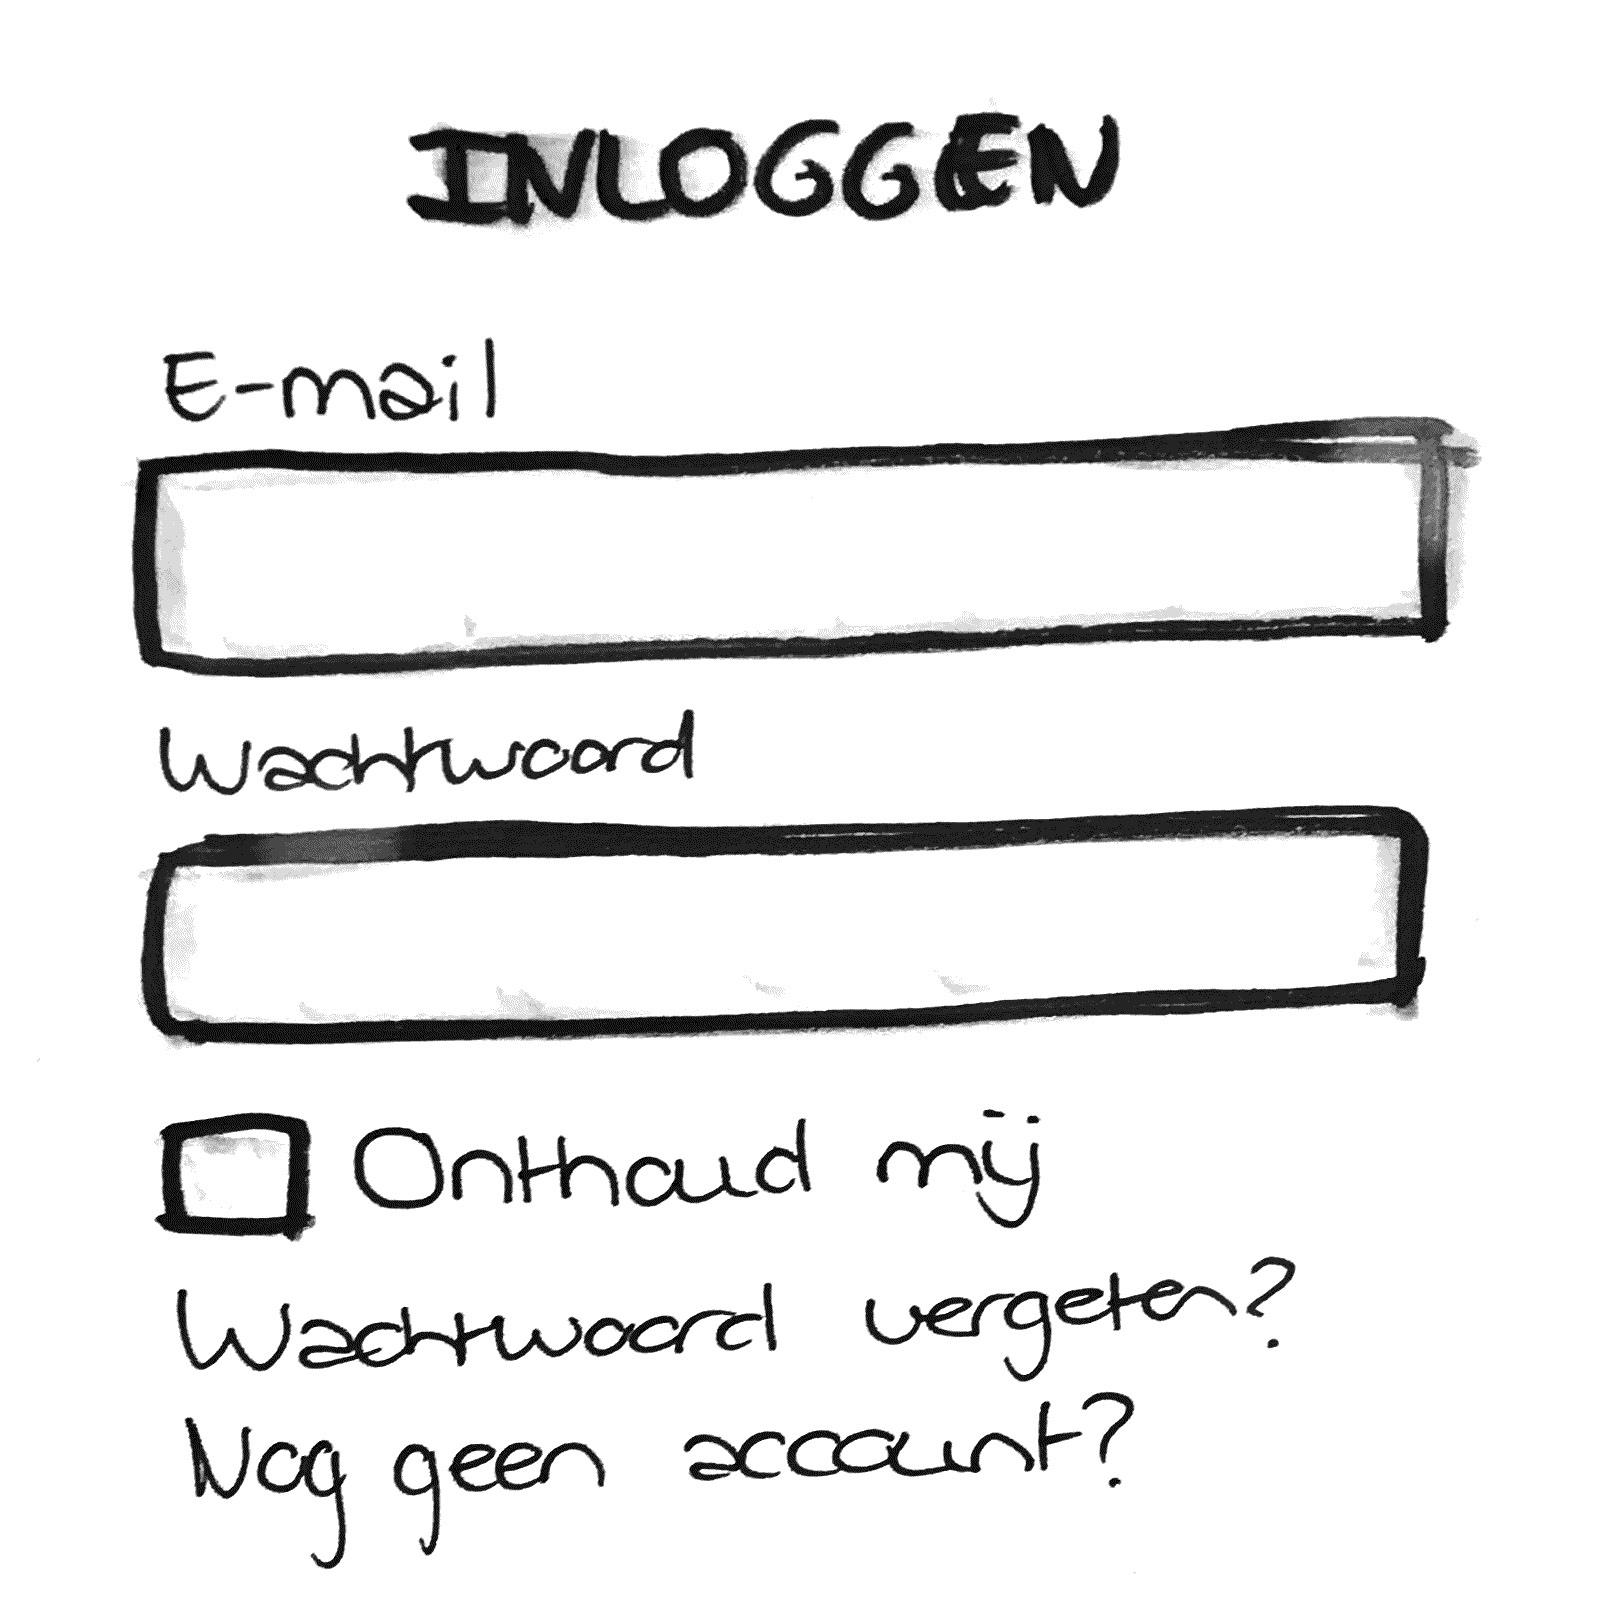 INLOGGEN
E-mail
Wachtwoord
Onthoud mij
Wachtwoord vergeten?
Nog geen account?